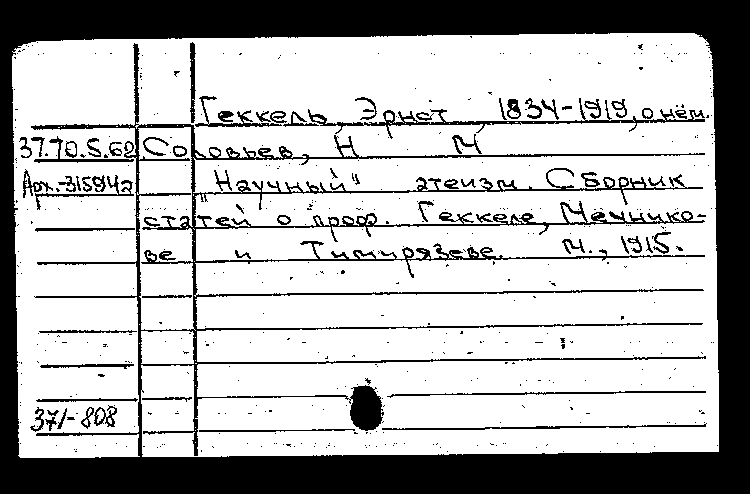 Геккель, Эрнст, 1834-1919, о нём.
37.70.5.62 Соловьев, Н М
Арх.-315942 "Научный" атеизм. Сборник
статей о проф. Геккеле, Мечнико-
ве и Тимирязеве. М., 1915.
371-808